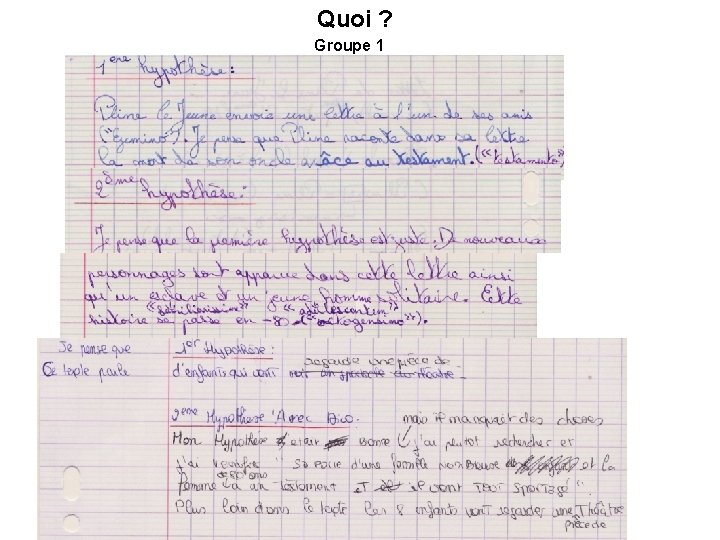 Quoi ?
Groupe 1
1ère hypothèse :
Pline le Jeune envoie une lettre à l'un de ses amis
("Geminio"). Je pense que Pline raconte dans sa lettre
la mort de son oncle grâce au testament. («testamento»)
2ème hypothèse :
Je pense que la première hypothèse est juste. De nouveaux
personnages sont apparue dans cette lettre ainsi
qu'un esclave et un jeune homme solitaire. Cette
«adulescentem»
histoire se passe en -80. («octogensimo»).
Je pense que
Ce texte parle
1er Hypothèse :
regarde une pièce de
d'enfants qui vont voir un spectacle de théatre.
2ème Hypothèse "Avec Dico.
mais il manquait des choses
Mon Hypothèse était Bonne j'ai peutot rechercher et
j'ai "Sa parle d'une famille nombreuse et la
femme a un testament et il vont Tout Sportagé".
Plus loin dans le texte les 8 enfants vont regarder une Théâtre
pièce de